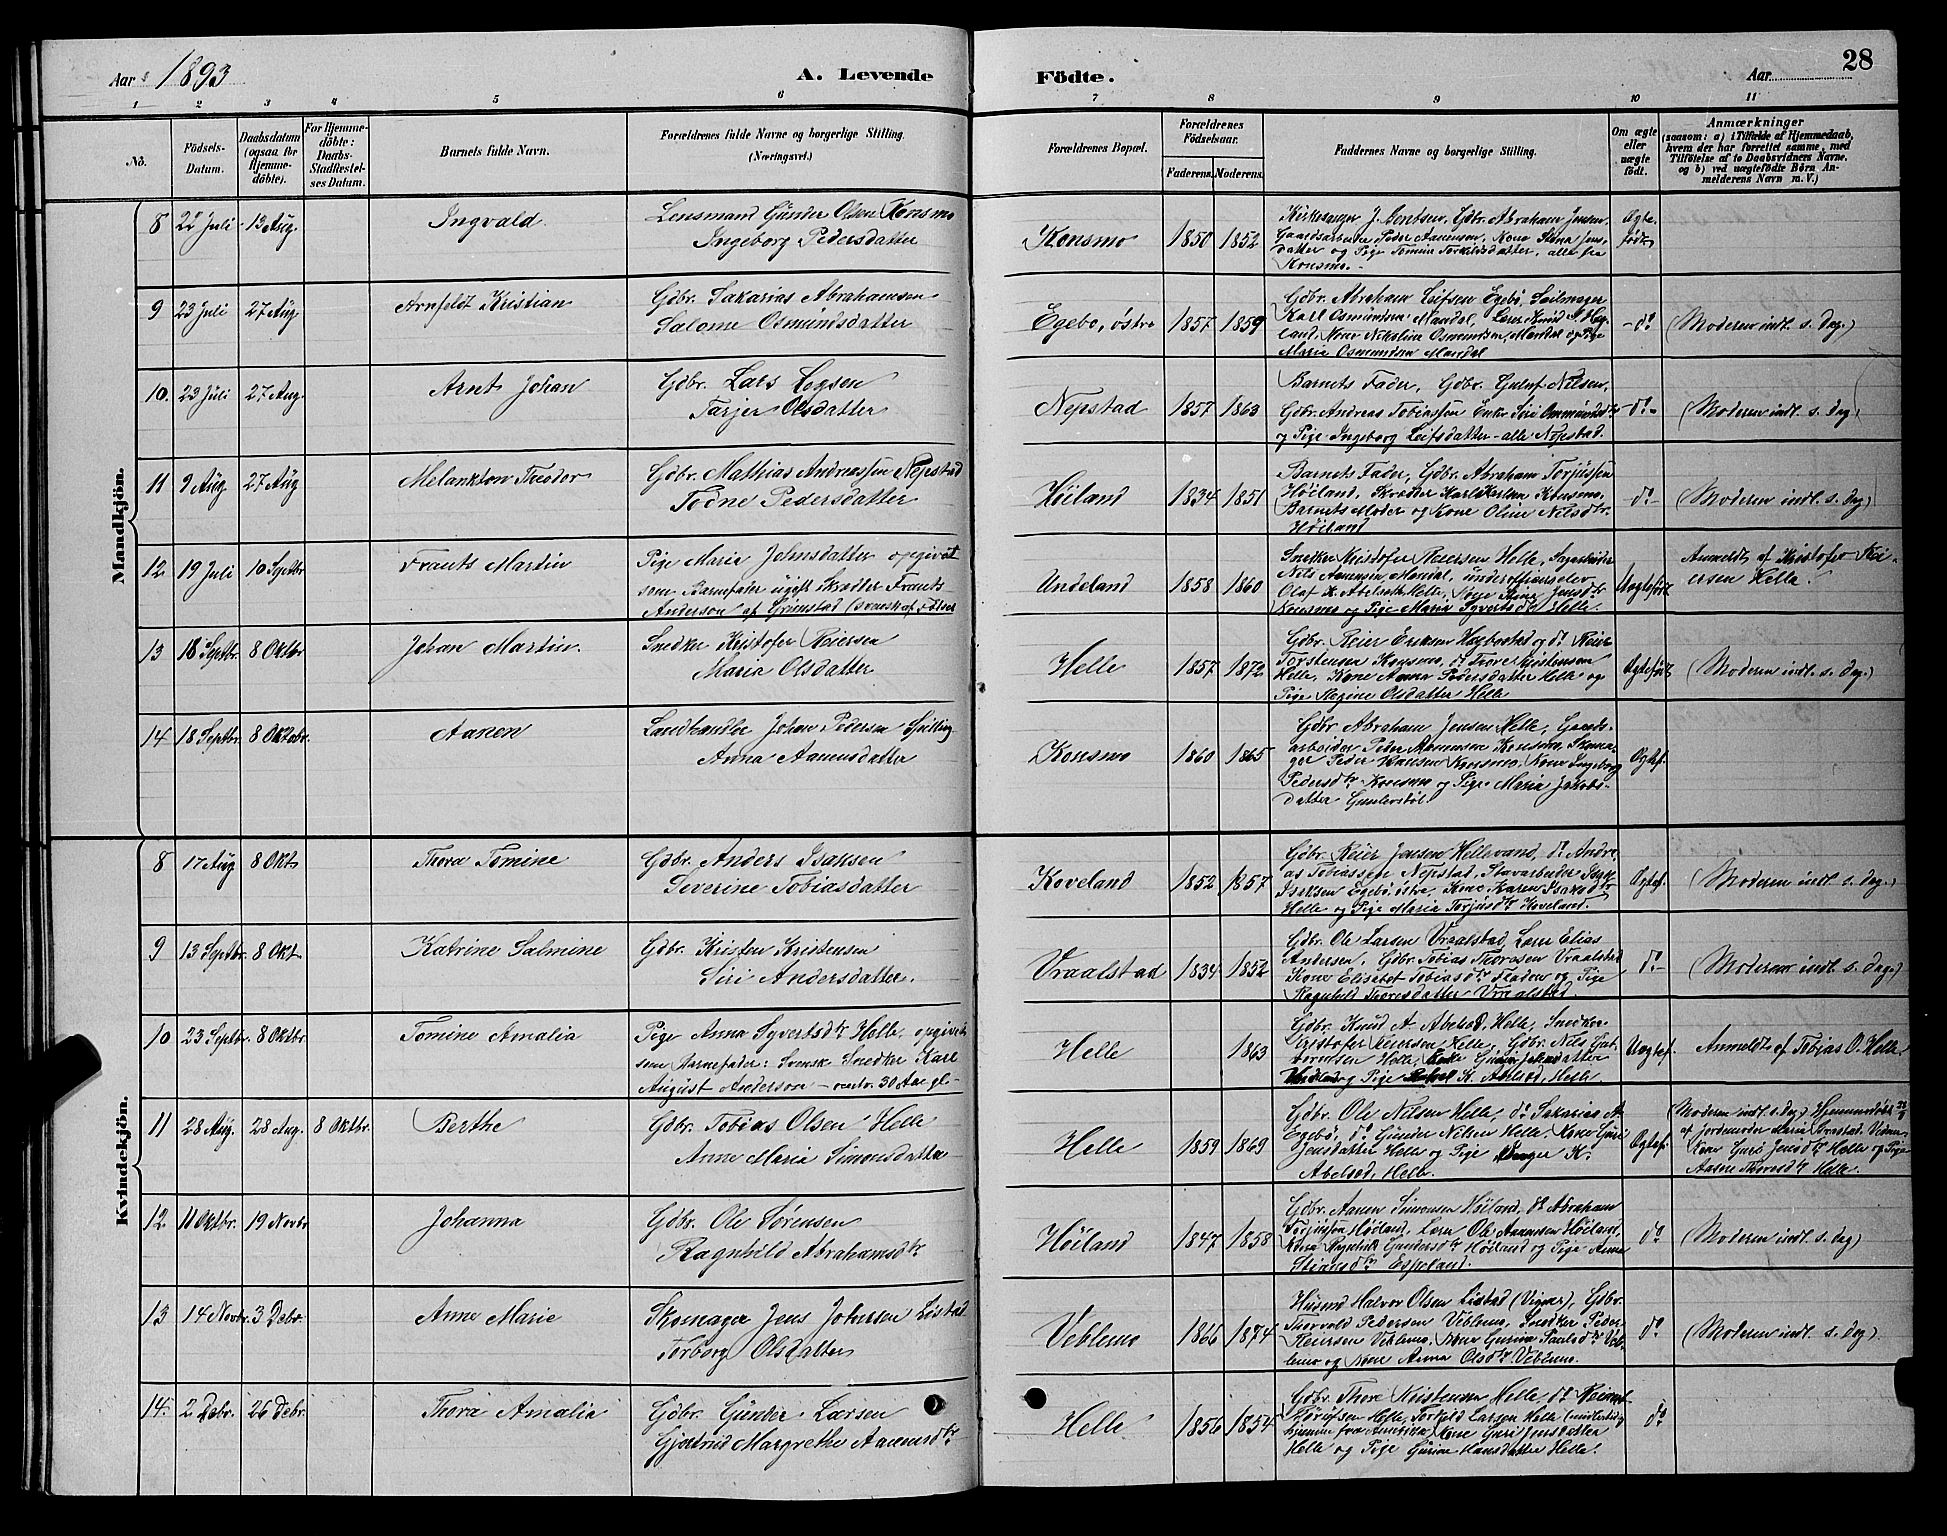 Aar 1893
A. Levende Fødte.
Aar
28
1 2 3 4 5 6 7 8 9 10 11
No.
Födsels-Datum.
Daabsdatum (ogsaa for Hjemme-döbte).
For Hjemme-döbte: Daabs-Stadfæstel-ses Datum.
Barnets fulde Navn.
Forældrenes fulde Navne og borgerlige Stilling. (Næringsvei.)
Forældrenes Bopæl.
Forældrenes Födselsaar.
Faderens. Moderens.
Faddernes Navne og borgerlige Stilling.
Om ægte eller uægte født.
Anmærkninger
(saasom: a) i Tilfælde af Hjemmedaab, hvem der har forrettet samme, med Tilföielse af to Daabsvidners Navne, og b) ved uægtefödte Börn An-melderens Navn m. V.)
Mandkjön.
8 22 Juli 13 Aug. Ingvald Lensmand Gunder Olsen Konsmo
Ingeborg Pedersdatter
Konsmo 1850 1852
Kirkesanger J. Jentsen, Gdbr. Abraham Jensen,
Gaardsarbeider Peder Aanensen, Kone Stena Jens-
datter og Pige Tomine Torkildsdatter, alle fra
Konsmo.
Ægte-
født
9 23 Juli 27 Aug Arnfeldt Kristian Gdbr. Sakarias Abrahamsen
Salome Osmundsdatter
Egebø, østre 1857 1859
Gdbr. Abraham Leifsen Egebø, Seilmager
Karl Osmundsen Mandal,
Kone Nikoline Osmundsen, Mandal og Pige
Maria Osmundsen Mandal
do (Moderen indl. s. dag.)
10. 23 Juli 27 Aug. Arnt Johan Gdbr. Lars
Tarjer Olsdatter
Nepstad 1857 1863
Barnets Fader, Gdbr. Guluf Nilsen,
Gdbr. Andreas Tobiassen Enke Siri Ommundsdtr
og Pige Ingeborg Leifsdatter - alle Nepstad.
do (Moderen indl. s. dag)
11 9 Aug 27 Aug Melankton Theodor Gdbr. Mathias Andreassen Nepstad
Todne Pedersdatter
Høiland 1834 1851
Barnets Fader, Gdbr. Abraham Torjussen
Høiland, Skræder Karl Karlsen Konsmo,
Barnets Moder og Kone Oline Nilsdtr.
Høiland
do (Moderen indl. s. dag)
12 19 Juli 10 Septbr Frants Martin Pige Maria Johnsdatter opgivet
som Barnefader ugift Skræder Frants
Anderson af Grimstad (svensk af Fødsel
Undeland 1858 1860
Snedker Kristofer Reiersen Helle,
Nils Aanensen Mandal, underofficerselev
Olaf K. Abelseth Helle, Pige Stena Jensdtr
Konsmo og Pige Maria Syvertsdtr Helle.
Uægtefødt Anmeldt af Kristofer Rei-
ersen Helle.
13 18 Septbr. 8 Oktbr Johan Martin. Snedker Kristofer Reiersen
Maria Olsdatter
Helle 1857 1872
Gdbr. Reier Eriksen Hægbostad og do Reier
Torstensen Konsmo, do Tore Kristensen
Helle, Kone Anna Pedersdatter Helle og
Pige Regine Olsdatter Helle
Ægtefødt (Moderen indl. s. dag.)
14 18 Septbr. 8 Oktobr. Aanen Landhandler Johan Pedersen Spilling
Anna Aanensdatter
Konsmo 1860 1865
Gdbr. Abraham Jensen Helle, Gaards-
arbeider Peder Aanensen Konsmo, Skoma-
ger Peder Hansen Konsmo, Kone Ingeborg
Pedersdtr. Konsmo og Pige Maria Jakobs-
datter Gunlevstøl.
Ægtef.
Kvindekjön.
8 17 Aug 8 Okt Thora Tomine Gdbr. Anders Isaksen
Severine Tobiasdatter
Koveland 1852 1857
Gdbr. Reier Jensen Hellevand, do Andre-
as Tobiassen Nepstad, Isak
Isaksen Egebø, østre, Kone Karen Isaksdtr
Helle og Pige Maria Torjusdtr Koveland.
Ægtef. (Moderen indl. s. dag.)
9 13 Septbr. 8 Okt. Katrine Salmine Gdbr. Kristen Kristensen
Siri Andersdatter.
Vraalstad 1834 1852
Gdbr. Ole Larsen Vraalstad, Løsn Elias
Andersen, Gdbr. Tobias Thoresen Vraalstad
Kone Elisabet Tobiasdtr og Pige
Ragnhild Thoresdatter Vraalstad.
do (Moderen indl. s. dag.)
10 23 Septbr 8 Oktbr. Tomine Amalia Pige Anna Syvertsdtr Helle, opgivet
som Barnefader: Svensk Snedker Karl
August Anderson - omtr. 30 Aar gl.
Helle 1863
Gdbr. Knud A. Abelsæd, Helle, Snedker
Kristofer Reiersen Helle, Gdbr. Nils Gut-
tormsen Helle,
og Pige K. Abelsæd, Helle.
Uægtef. Anmeldt af Tobias O. Helle
11 28 Aug. 28 Aug. 8 Oktbr. Berthe Gdbr. Tobias Olsen Helle
Anne Maria Simonsdatter
Helle 1859 1869
Gdbr. Ole Nilsen Helle, do Sakarias A
Egebø, do Gunder Nilsen Helle, Kone Guri
Jensdatter Helle og Pige Inger K.
Abelsæd, Helle.
Ægtef. (Moderen indl. s. dag) Hjemmedøbt
af Jordemoder Maria Vidner:
Kone Guri Jensdtr Helle og Pige
Aasne Thoresdtr Helle.
12. 11 Oktbr. 19 Novbr Johanna Gdbr. Ole Sørensen
Ragnhild Abrahamsdtr
Høiland 1847 1858
Gdbr. Aanen Simonsen Høiland, do Abraham
Torjussen Høiland, Løsn Ole Aanensen Høiland,
Kone Ragnhild Gundersdtr Høiland og Pige Anna
Espeland.
do (Moderen indl. s. dag)
13 14 Novbr. 3 Debr. Anne Marie Skomager Jens Johnsen Listad
Torborg Olsdatter
Veblemo 1866 1874
Husmd Halvor Olsen Listad (Vigmo), Gdbr.
Thorvald Pedersen Veblemo, Snedker Peder
Reiersen Veblemo, Kone Gurine Paulsdtr Veb-
lemo og Kone Anna Olsdtr Veblemo.
do (Moderen indl. s. dag)
14. 2 Debr. 26 Debr. Thora Amalia Gdbr. Gunder Larsen
Gjertrud Margrethe Aanensdtr
Helle 1856 1854
Gdbr. Thore Kristensen Helle, do
Helle, Torkeld Larsen Helle
hjemme fra Amerika, Kone Guri Jensdatter
Helle og Pige Gurine Hansdatter Helle.
do